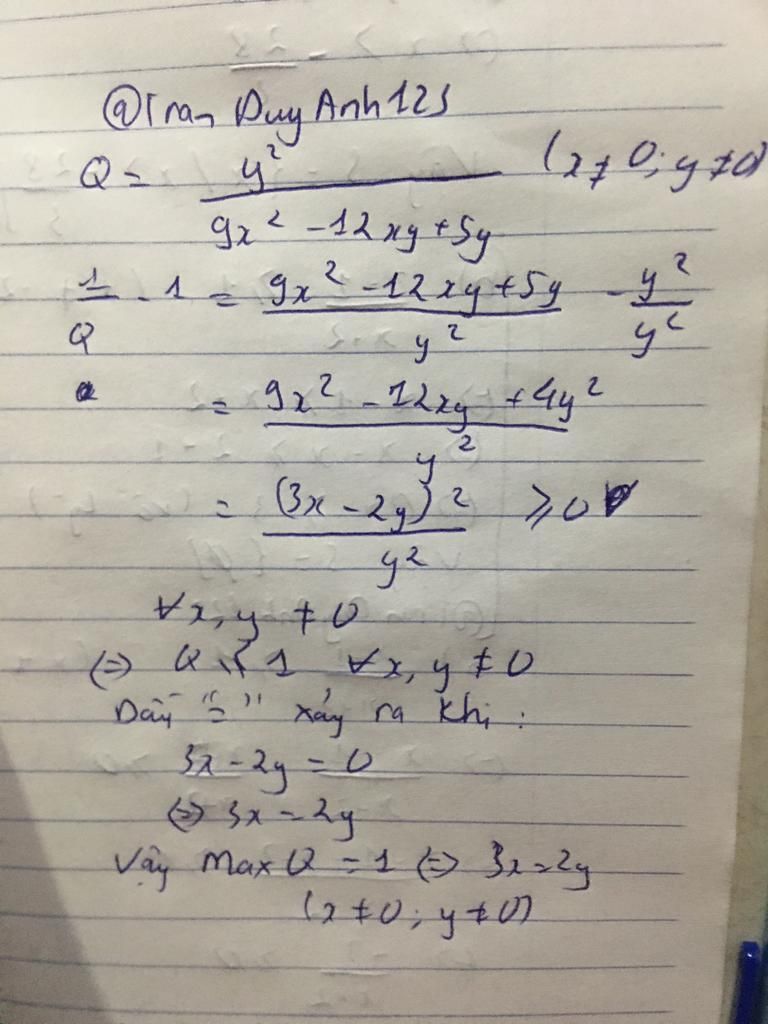 @Tran Duy Anh123
Q = y² / (9x² - 12xy + 5y) (x ≠ 0; y ≠ 0)
1/Q - 1 = (9x² - 12xy + 5y) / y² - y²/y²
= (9x² - 12xy + 4y²) / y²
= (3x - 2y)² / y² ≥ 0
∀x, y ≠ 0
(=) Q ≤ 1 ∀x, y ≠ 0
Dấu "=" xảy ra khi:
3x - 2y = 0
(=) 3x = 2y
Vậy Max Q = 1 (=) 3x = 2y
(x ≠ 0; y ≠ 0)